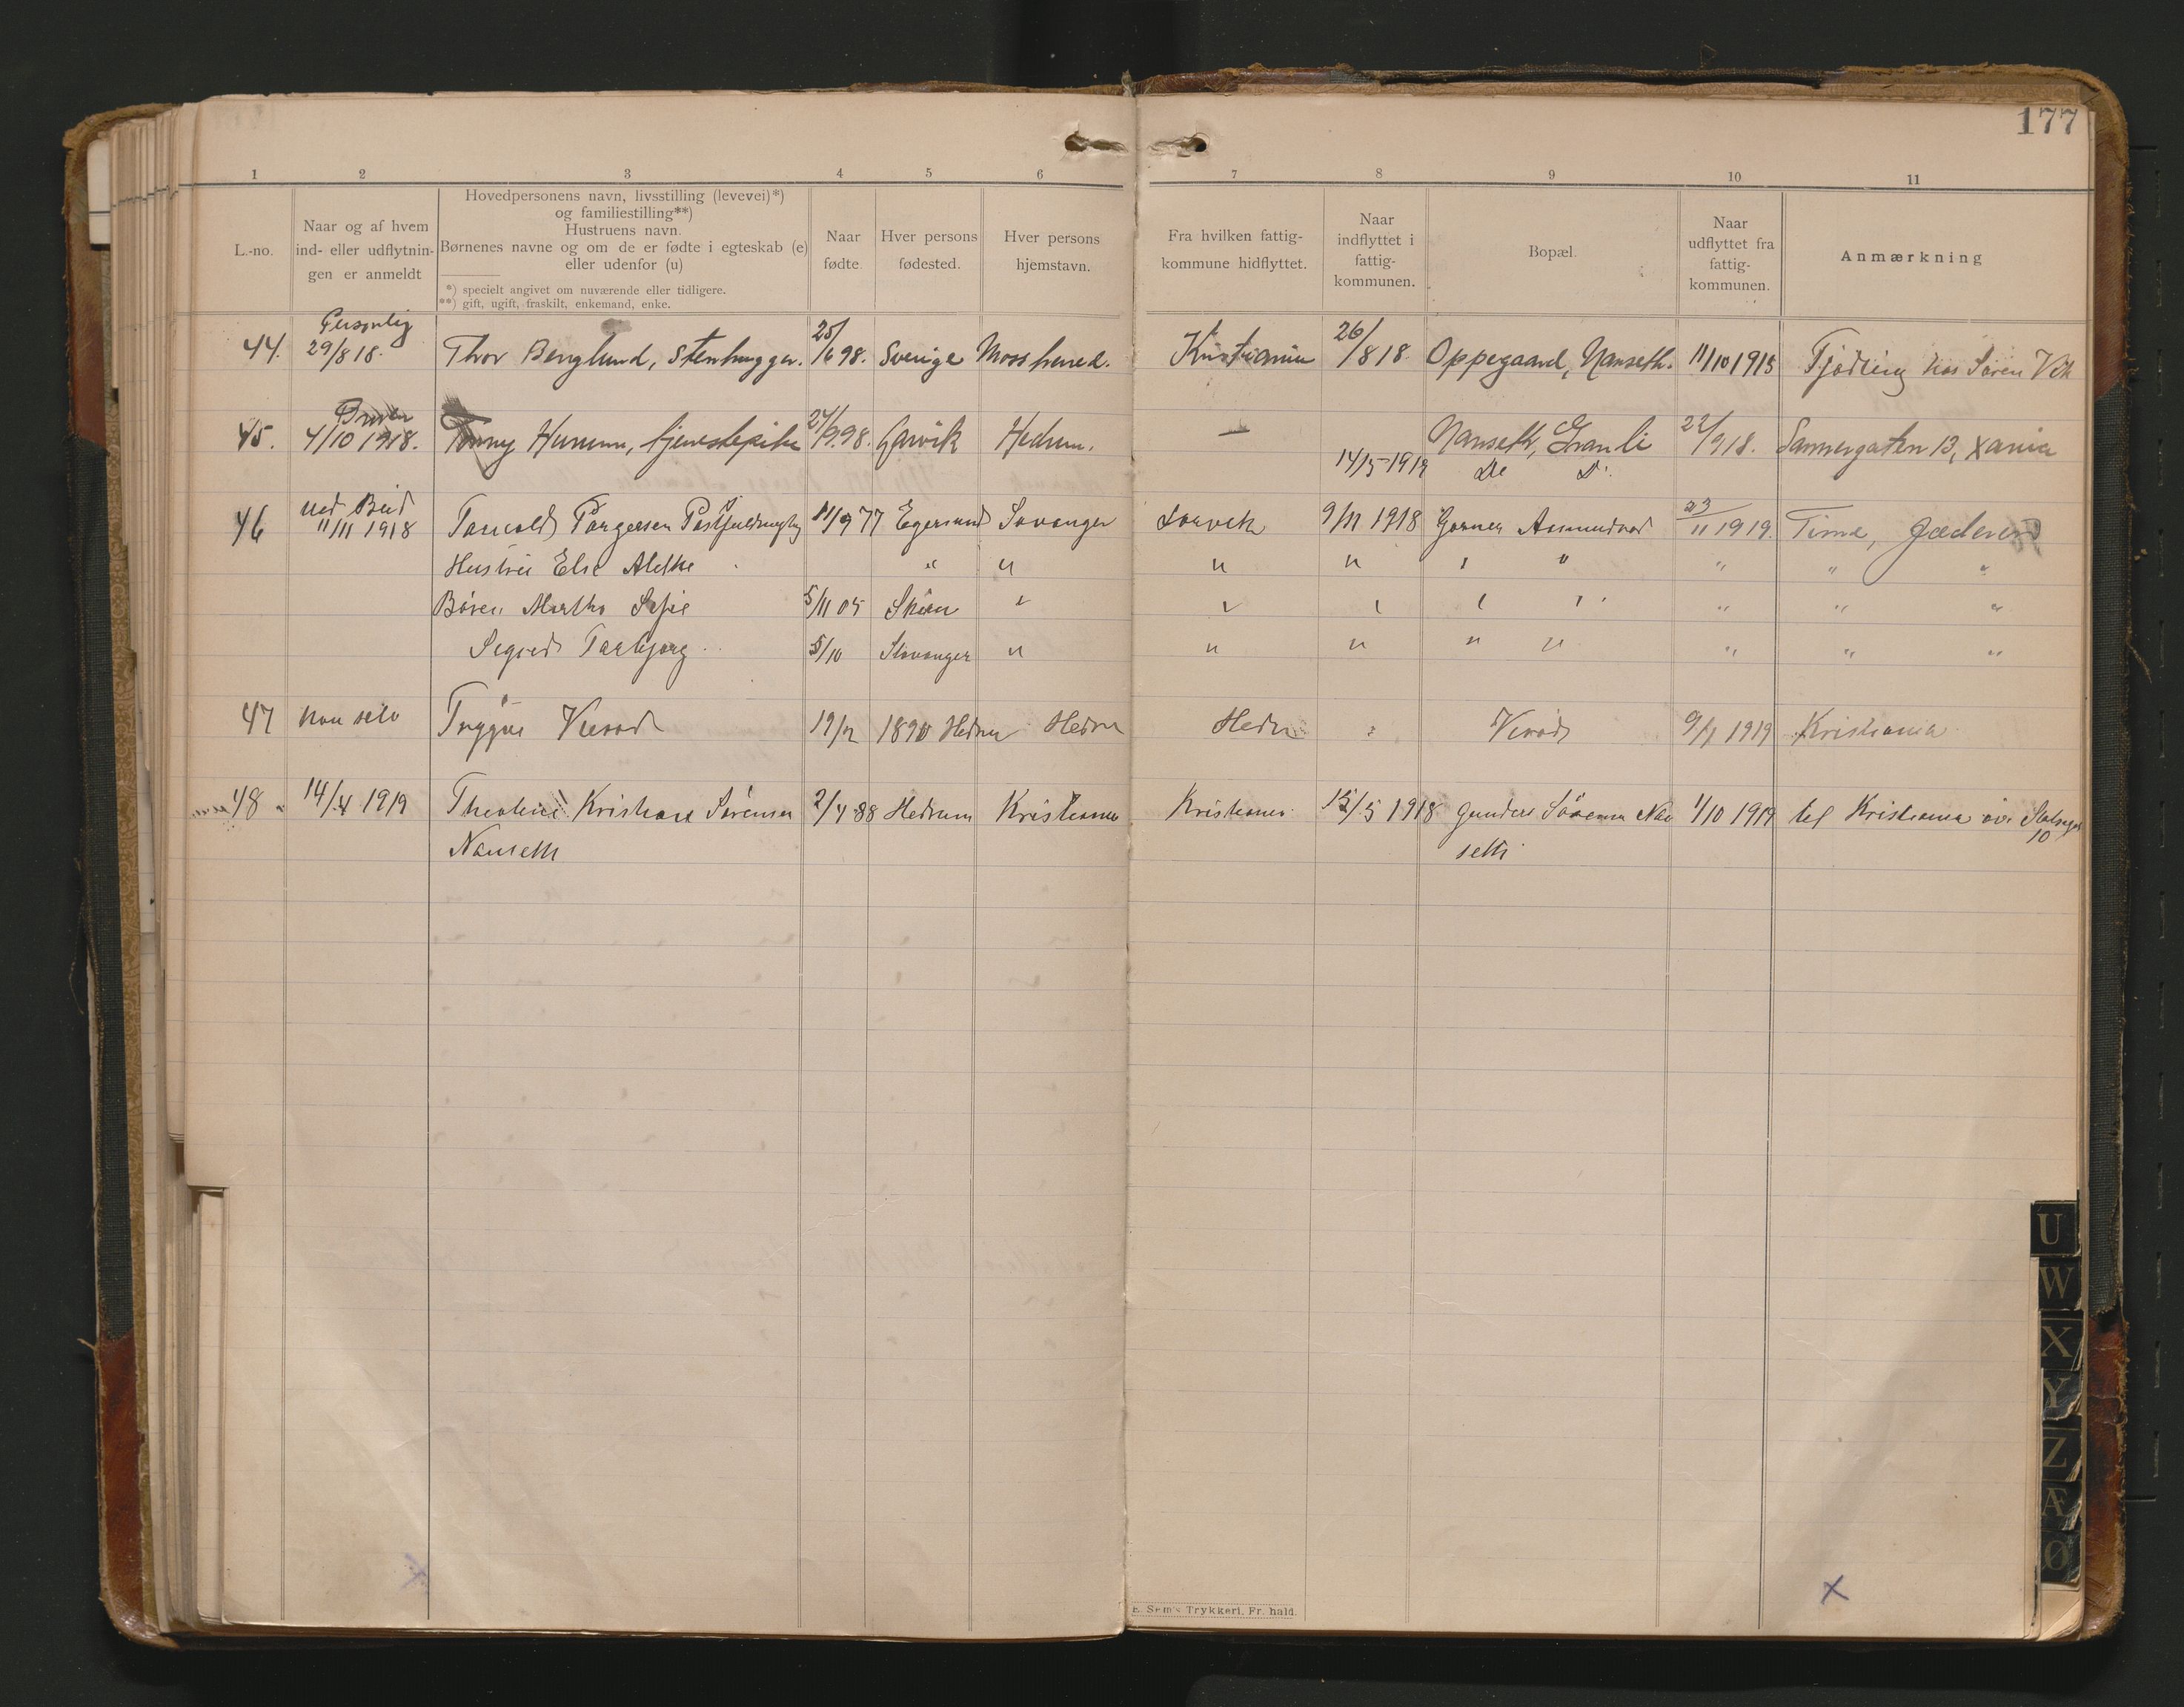 177
1 2 3 4 5 6 7 8 9 10 11
L.-no.
Naar og af hvem
ind- eller udflytnin-
gen er anmeldt
Hovedpersonens navn, livsstilling (levevei)*)
og familiestilling**)
Hustruens navn.
Børnenes navne og om de er fødte i egteskab (e)
eller udenfor (u)
*) specielt angivet om nuværende eller tidligere.
**) gift, ugift, fraskilt, enkemand, enke.
Naar
fødte.
Hver persons
fødested.
Hver persons
hjemstavn.
Fra hvilken fattig-
kommune hidflyttet.
Naar
indflyttet i
fattig-
kommunen.
Bopæl.
Naar
udflyttet fra
fattig-
kommunen.
Anmærkning
Personlig
44. 29/8 18. Thor Berglund, Stenhugger. 25/6 98. Sverige Moss herred. Kristiania 26/8 18. Oppegaard, Nanseth. 11/10 1918 Tjødling hos Søren Vik
45. 4/10 1918. Hurum, tjenestepike 24/9.98. Larvik Hedrum. — Nanseth, Granli 22/9 18. Sannergaten 13, Xania
14/5-1919 Do Do
ved Bud
46 11/11 1918 Torvald Torgersen 11/9 77 Egersund Stavanger Larvik 9/11 1918 Gorner Asmundrød 23/11 1919. Time, Jæderen
Hustru Else " " " " " " " " "
Børn Martha Sofie 5/11 05 Skien " " " " " " " "
Sigrid Torbjørg 5/10 Stavanger " " " " " " " "
47 Han selv Trygve Verød 19/2 1890 Hedrum Hedrum Hedrum Verød 9/1 1919 Kristiania
48 14/4 1919 Kristiane Sørensen 2/4 88 Hedrum Kristiania Kristiania 15/5 1918 Gunder Sørensen Nan 1/10 1919 til Kristiania
Nanseth seth 10
U
W
X
Y
Z
Æ
Ø
E. Sem's Trykkeri, Fr.hald.
X